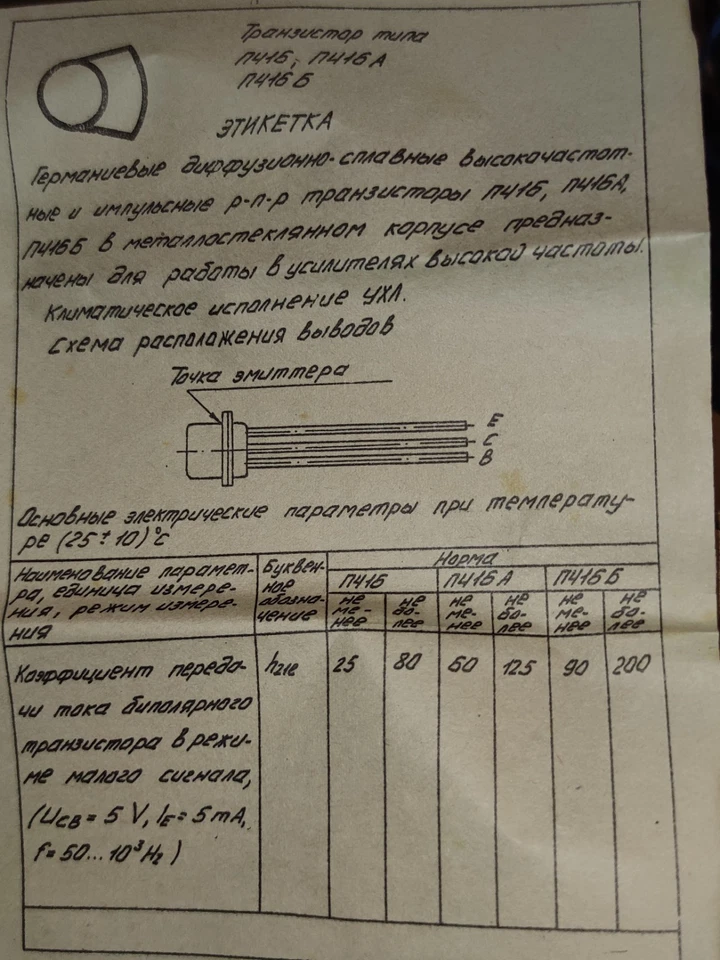 Транзистор типа
П416, П416А
П416Б
ЭТИКЕТКА
Германиевые диффузионно-сплавные высокочастот-
ные и импульсные p-n-p транзисторы П416, П416А,
П416Б в металлостеклянном корпусе предназ-
начены для работы в усилителях высокой частоты.
Климатическое исполнение УХЛ.
Схема расположения выводов
Точка эмиттера
E
C
B
Основные электрические параметры при температу-
ре (25 ± 10)°С
Наименование парамет-
ра, единица измере-
ния, режим измере-
ния
Буквен-
ное
обозна-
чение
Норма
П416
П416А
П416Б
не ме-нее
не бо-лее
не ме-нее
не бо-лее
не ме-нее
не бо-лее
Коэффициент переда-
чи тока биполярного
транзистора в режи-
ме малого сигнала,
(UCB = 5 V, IE = 5 mA,
f = 50...10³ Hz)
h21e
25
80
60
125
90
200